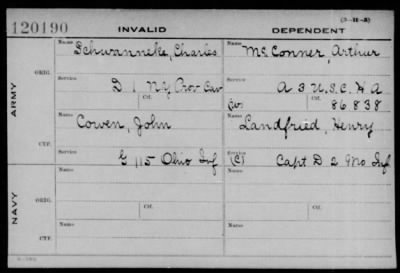 120190 INVALID DEPENDENT (3-11-3)
ARMY
ORIG.
Name Schwanneke, Charles
Name McConner, Arthur
Service D 1 N.Y. Prov Cav
Service A 3 U.S.C. H A
Ctf.
(W) Ctf. 86838
CTF.
Name Cowen, John
Name Landfried, Henry
Service G 115 Ohio Inf
Service (C) Capt D 2 Mo Inf
NAVY
ORIG.
Name
Ctf.
Name
Ctf.
Service
Service
CTF.
Name
Name
Service
Service